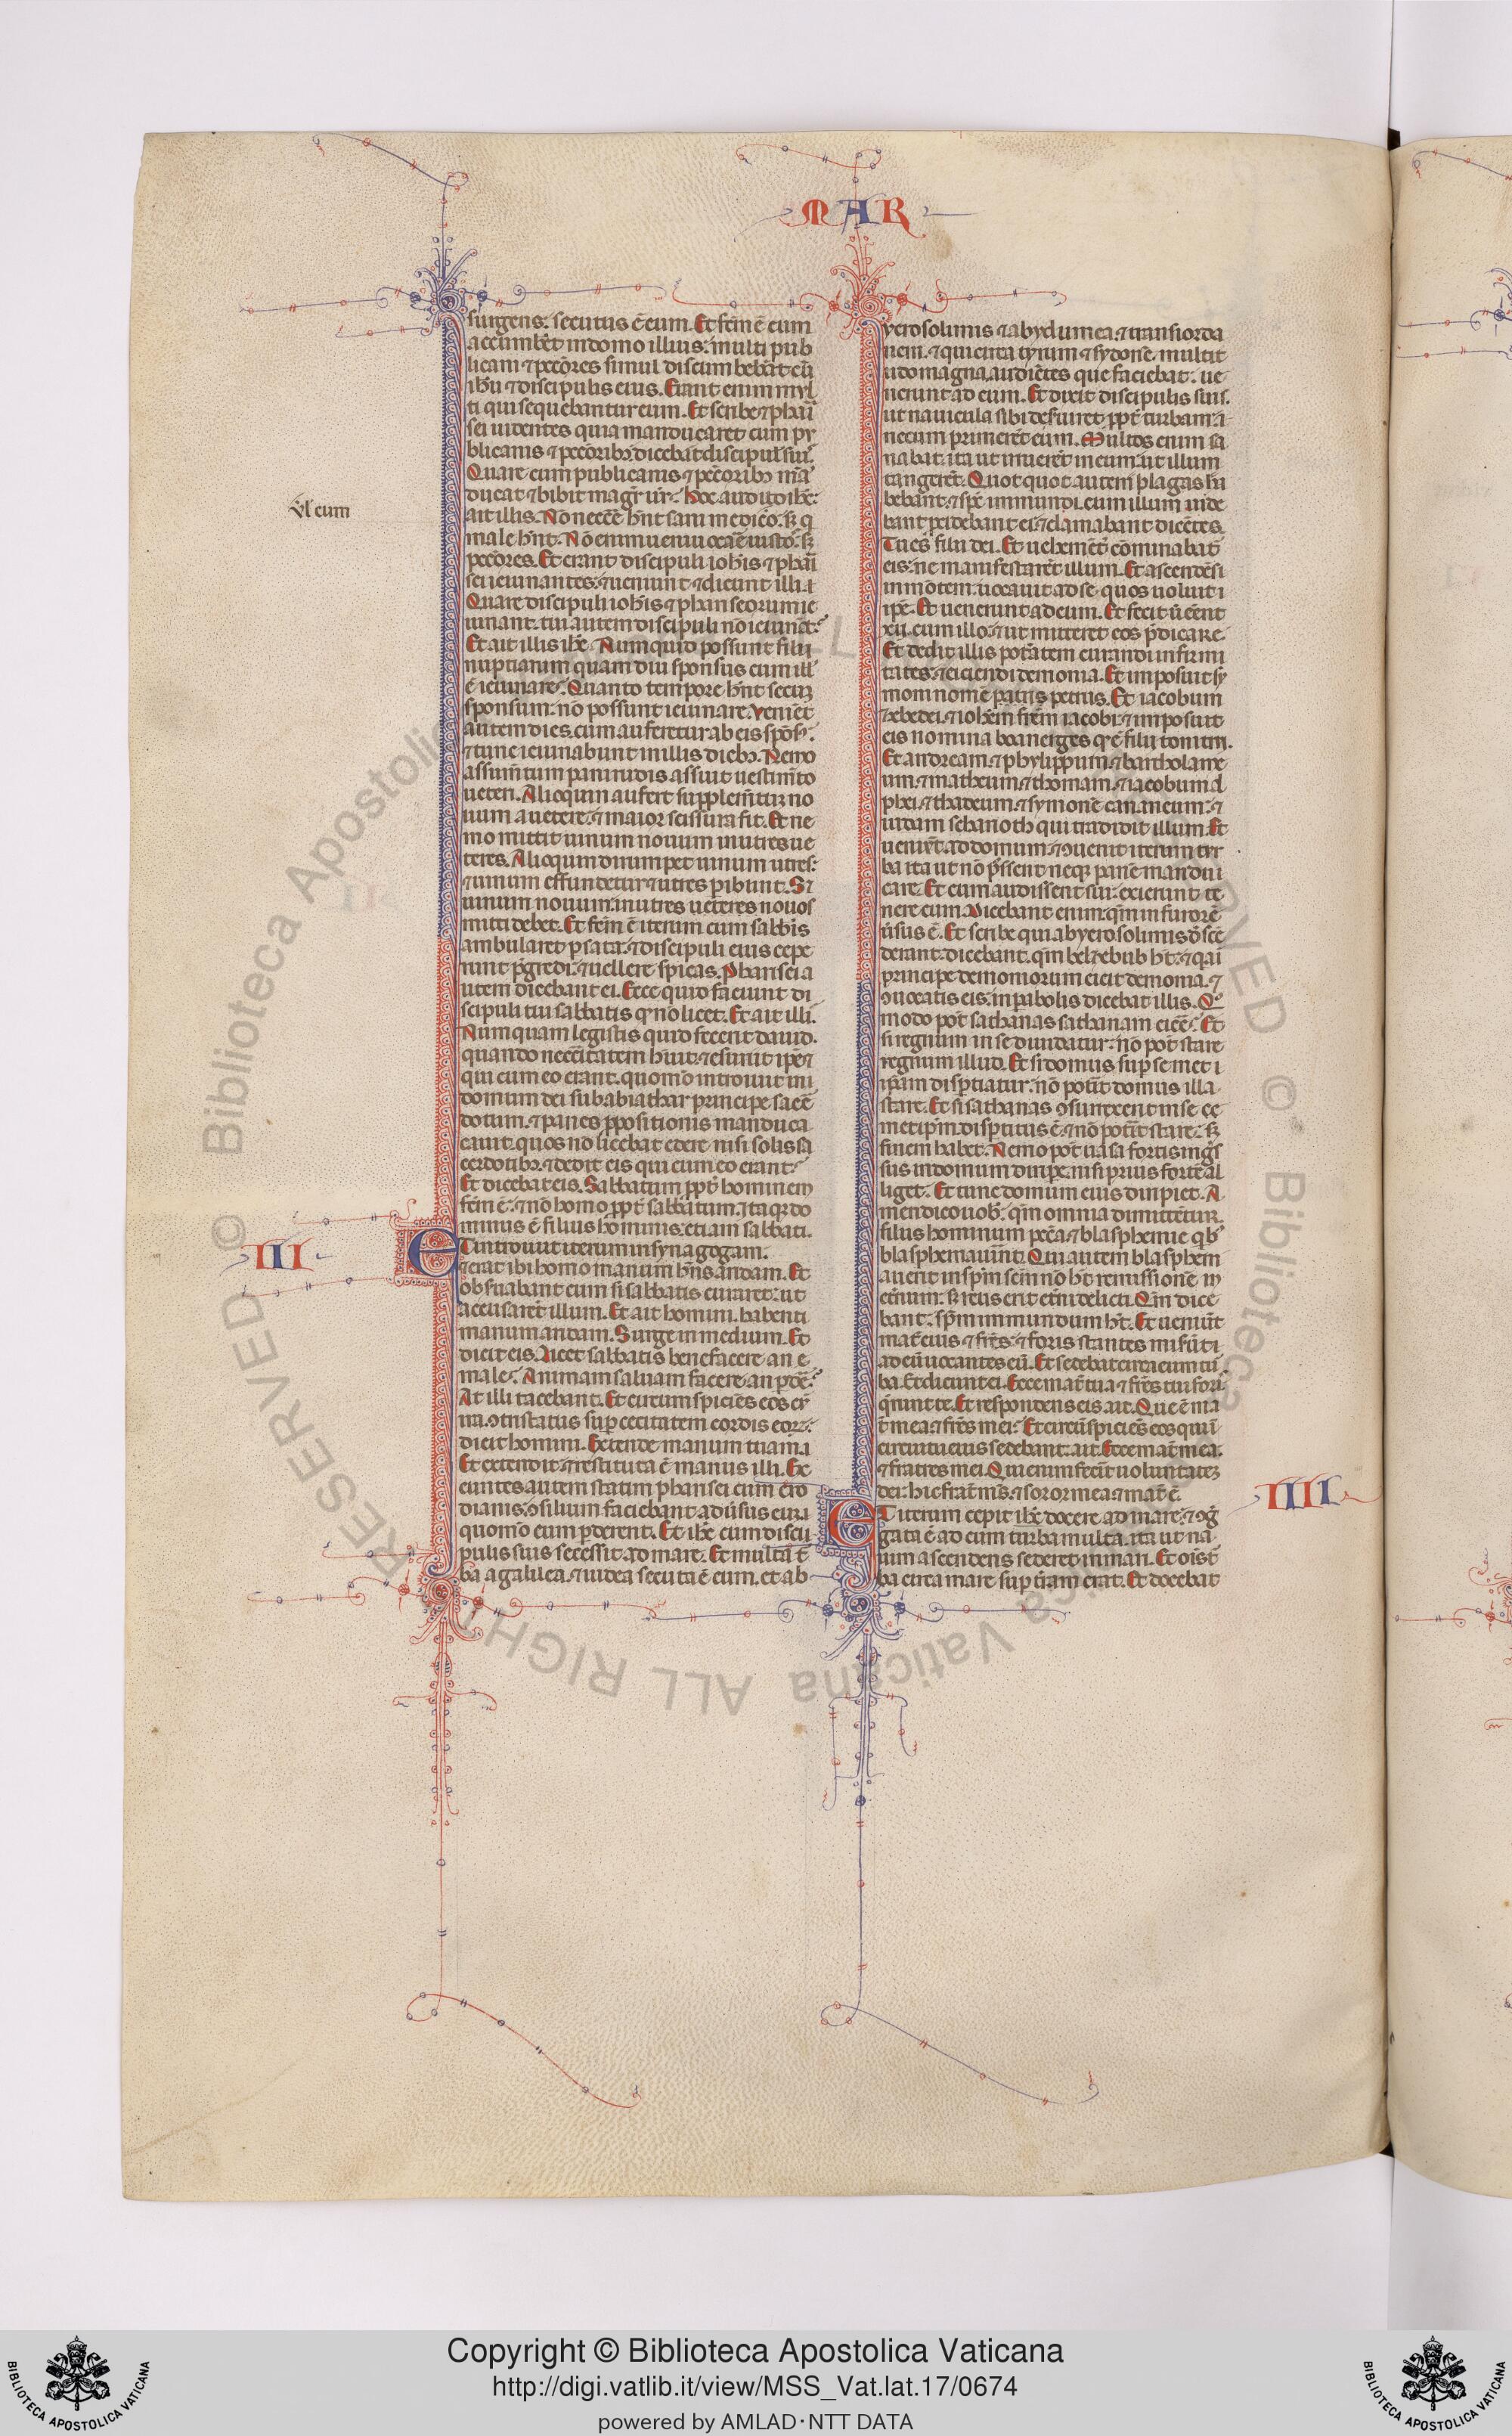 MAR
surgens. secutus ē eum. Et fc̄m ē cum
accumbēt in domo illius. multi pub
licani ⁊ pecc̄ores simul discumbebāt cū
ih̄u ⁊ discipulis eius. Erant enim myl
ti qui sequebantur eum. Et scribe ⁊ phari
sei uidentes quia manducaret cum pu
blicanis ⁊ pecc̄orib; dicebāt discipul̄ sui.
Quare cum publicanis ⁊ pecc̄orib; mā
ducat ⁊ bibit magr̄ ur̄. Hoc audito ih̄c.
ul̄ cum
ait illis. Nō necc̄e hn̄t sani medico. sʒ q̄
male hn̄t. Nō enim ueni uocare iustos. sʒ
pecc̄ores. Et erant discipuli ioh̄is ⁊ phari
sei ieiunantes. ⁊ ueniunt ⁊ dicunt illi.
Quare discipuli ioh̄is ⁊ phariseorum ie
iunant. tui autem discipuli nō ieiunāt.
Et ait illis ih̄c. Numquid possunt filii
nuptiarum quam diu sponsus cum ill̄
ē ieiunare. Quanto tempore hn̄t secum
sponsum. nō possunt ieiunare. Veniēt
autem dies. cum auferetur ab eis spōs.
⁊ tunc ieiunabunt in illis dieb;. Nemo
assumtum panni rudis assuit uestimto
ueteri. Alioquin aufert supplem̄tum no
uum a ueteri. ⁊ maior scissura fit. Et ne
mo mittit uinum nouum in utres ue
teres. Alioquin dirumpet uinum utres.
⁊ uinum effundetur ⁊ utres peribunt. Si
uinum nouum in utres ueteres nouos
miti debet. Et fc̄m ē iterum cum sabb̄is
ambularet p sata. ⁊ discipuli eius cepe
runt p̄gredi. ⁊ uellere spicas. Pharisei a
utem dicebant ei. Ecce quid faciunt di
scipuli tui sabbatis q̄ nō licet. Et ait illi.
Numquam legistis quid fecerit dauid.
quando necc̄itatem h̄uit. ⁊ esuriit ipē ⁊
qui cum eo erant. quomō introiuit in
domum dei sub abiathar principe sacē
dotum. ⁊ panes ppositionis manduca
cauit. quos nō licebat edere nisi solis sa
cerdotib;. ⁊ dedit eis qui cum eo erant.
Et dicebat eis. Sabbatum ppt̄ hominem
fc̄m ē. ⁊ nō homo ppt̄ sabbatum. itaq; do
minus ē filius hominis. etiam sabbati.
III
ET introiuit iterum in synagogam.
⁊ erat ibi homo manum hn̄s aridam. Et
obseruabant eum si sabbatis curaret. ut
accusarēt illum. Et ait homini. habenti
manum aridam. Surge in medium. Et
dicit eis. Licet sabbatis benefacere an
male. Animam saluam facere. an pdē.
At illi tacebant. Et circumspiciēs eos cū
ira. ꝯtristatus sup cecitatem cordis eorū.
dicit homini. Extende manum tuam.
Et extendit. ⁊ restituta ē manus illi. Ex
euntes autem statim pharisei cum ero
dianis. ꝯsilium faciebant aduersus eum.
quomō eum pderent. Et ih̄c cum disci
pulis suis secessit ad mare. Et multa t̄
ba a galilea. ⁊ iudea secuta ē eum. et ab
yerosolimis ⁊ ab ydumea. ⁊ transiorda
nem. ⁊ qui circa tyrum ⁊ sydonē. multit
udo magna. audiētes que faciebat. ue
nerunt ad eum. Et dicit discipulis suis.
ut nauicula sibi deseruiret ppt̄ turbam.
ne cum primerēt eum. Multos enim sa
nabat. ita ut irruerēt in eum. ut illum
tangerēt. Quot quot autem plagas ha
bebant. ⁊ sps̄ immundi. cum illum uide
bant. pcidebant ei. ⁊ clamabant dicētes.
Tu es filius dei. Et uehement̄ cōminabat̄
eis. ne manifestarēt illum. Et ascendēs i
in mōtem. uocauit ad se. quos uoluit i
ipē. Et uenerunt ad eum. Et fecit ut eēnt
xii. cum illo. ⁊ ut mitteret eos p̄dicare.
Et dedit illis potātem curandi infirmi
tates. ⁊ eiciendi demonia. Et imposuit sy
moni nomē petrus. Et iacobum
zebedei. ⁊ ioh̄em fr̄em iacobi. ⁊ imposuit
eis nomina boanerges q̄ ē filii tonitrui.
Et andream. ⁊ phylippum. ⁊ bartholame
um. ⁊ matheum. ⁊ thomam. ⁊ iacobum al
phei. ⁊ thadeum. ⁊ symonē cananeum. ⁊
iudam scharioth qui tradidit illum. Et
ueniūt ad domum. ⁊ ꝯuenit iterum tur
ba ita ut nō possent neq; panē mandu
care. Et cum audissent sui. exierunt te
nere eum. Dicebant enim. qm̄ in furorē
uersus ē. Et scribe qui ab yerosolimis dēscē
derant. dicebant. qm̄ belzebub h̄t. ⁊ q̄a i
principe demoniorum eicit demonia. ⁊
ꝯuocatis eis. in pabolis dicebat illis. Qo
modo pot̄ sathanas sathanam eicē. Et
si regnum in se diuidatur. nō pot̄ stare
regnum illud. Et si domus sup semet i
ipsam dispertiatur. nō pot̄it domus illa
stare. Et si sathanas ꝯsurrexerit in se
metipm̄. dispertitus ē. ⁊ nō pot̄it stare. sʒ
finem habet. Nemo pot̄ uasa fortis ingr̄s
sus in domum diripe. nisi prius fortē al
liget. Et tunc domum eius diripiet. A
men dico uob̄. qm̄ omnia dimittentur
filiis hominum pecc̄a. ⁊ blasphemie qb;
blasphemauīnt. Qui autem blasphem
auerit in sp̄m sc̄m nō h̄t remissionē in
et̄num. sʒ reus erit et̄ni delicti. Qm̄ dice
bant. sp̄m immundum h̄t. Et ueniūnt
mat̄ eius ⁊ fr̄es. ⁊ foris stantes miserūt
ad eū uocantes eū. Et sedebat circa eum tu
ba. Et dicunt ei. Ecce mat̄ tua ⁊ fr̄es tui foris
q̄runt te. Et respondens eis ait. Que ē ma
t̄ mea. ⁊ fr̄es mei. Et circūspiciēs eos qui i
circuitu eius sedebant. ait. Ecce mat̄ mea.
⁊ fratres mei. Qui enim fecīt uoluntatem
dei. hic frat̄ ms̄. ⁊ soror mea ⁊ mat̄ ē.
IIII
ET iterum cepit ih̄c docere ad mare. ⁊ ꝯg
gata ē ad eum turba multa. ita ut na
uim ascendens sederet in mari. Et ois̄ t̄
ba circa mare sup terram erat. Et docebat
Copyright © Biblioteca Apostolica Vaticana
http://digi.vatlib.it/view/MSS_Vat.lat.17/0674
powered by AMLAD·NTT DATA
BIBLIOTECA APOSTOLICA VATICANA
BIBLIOTECA APOSTOLICA VATICANA